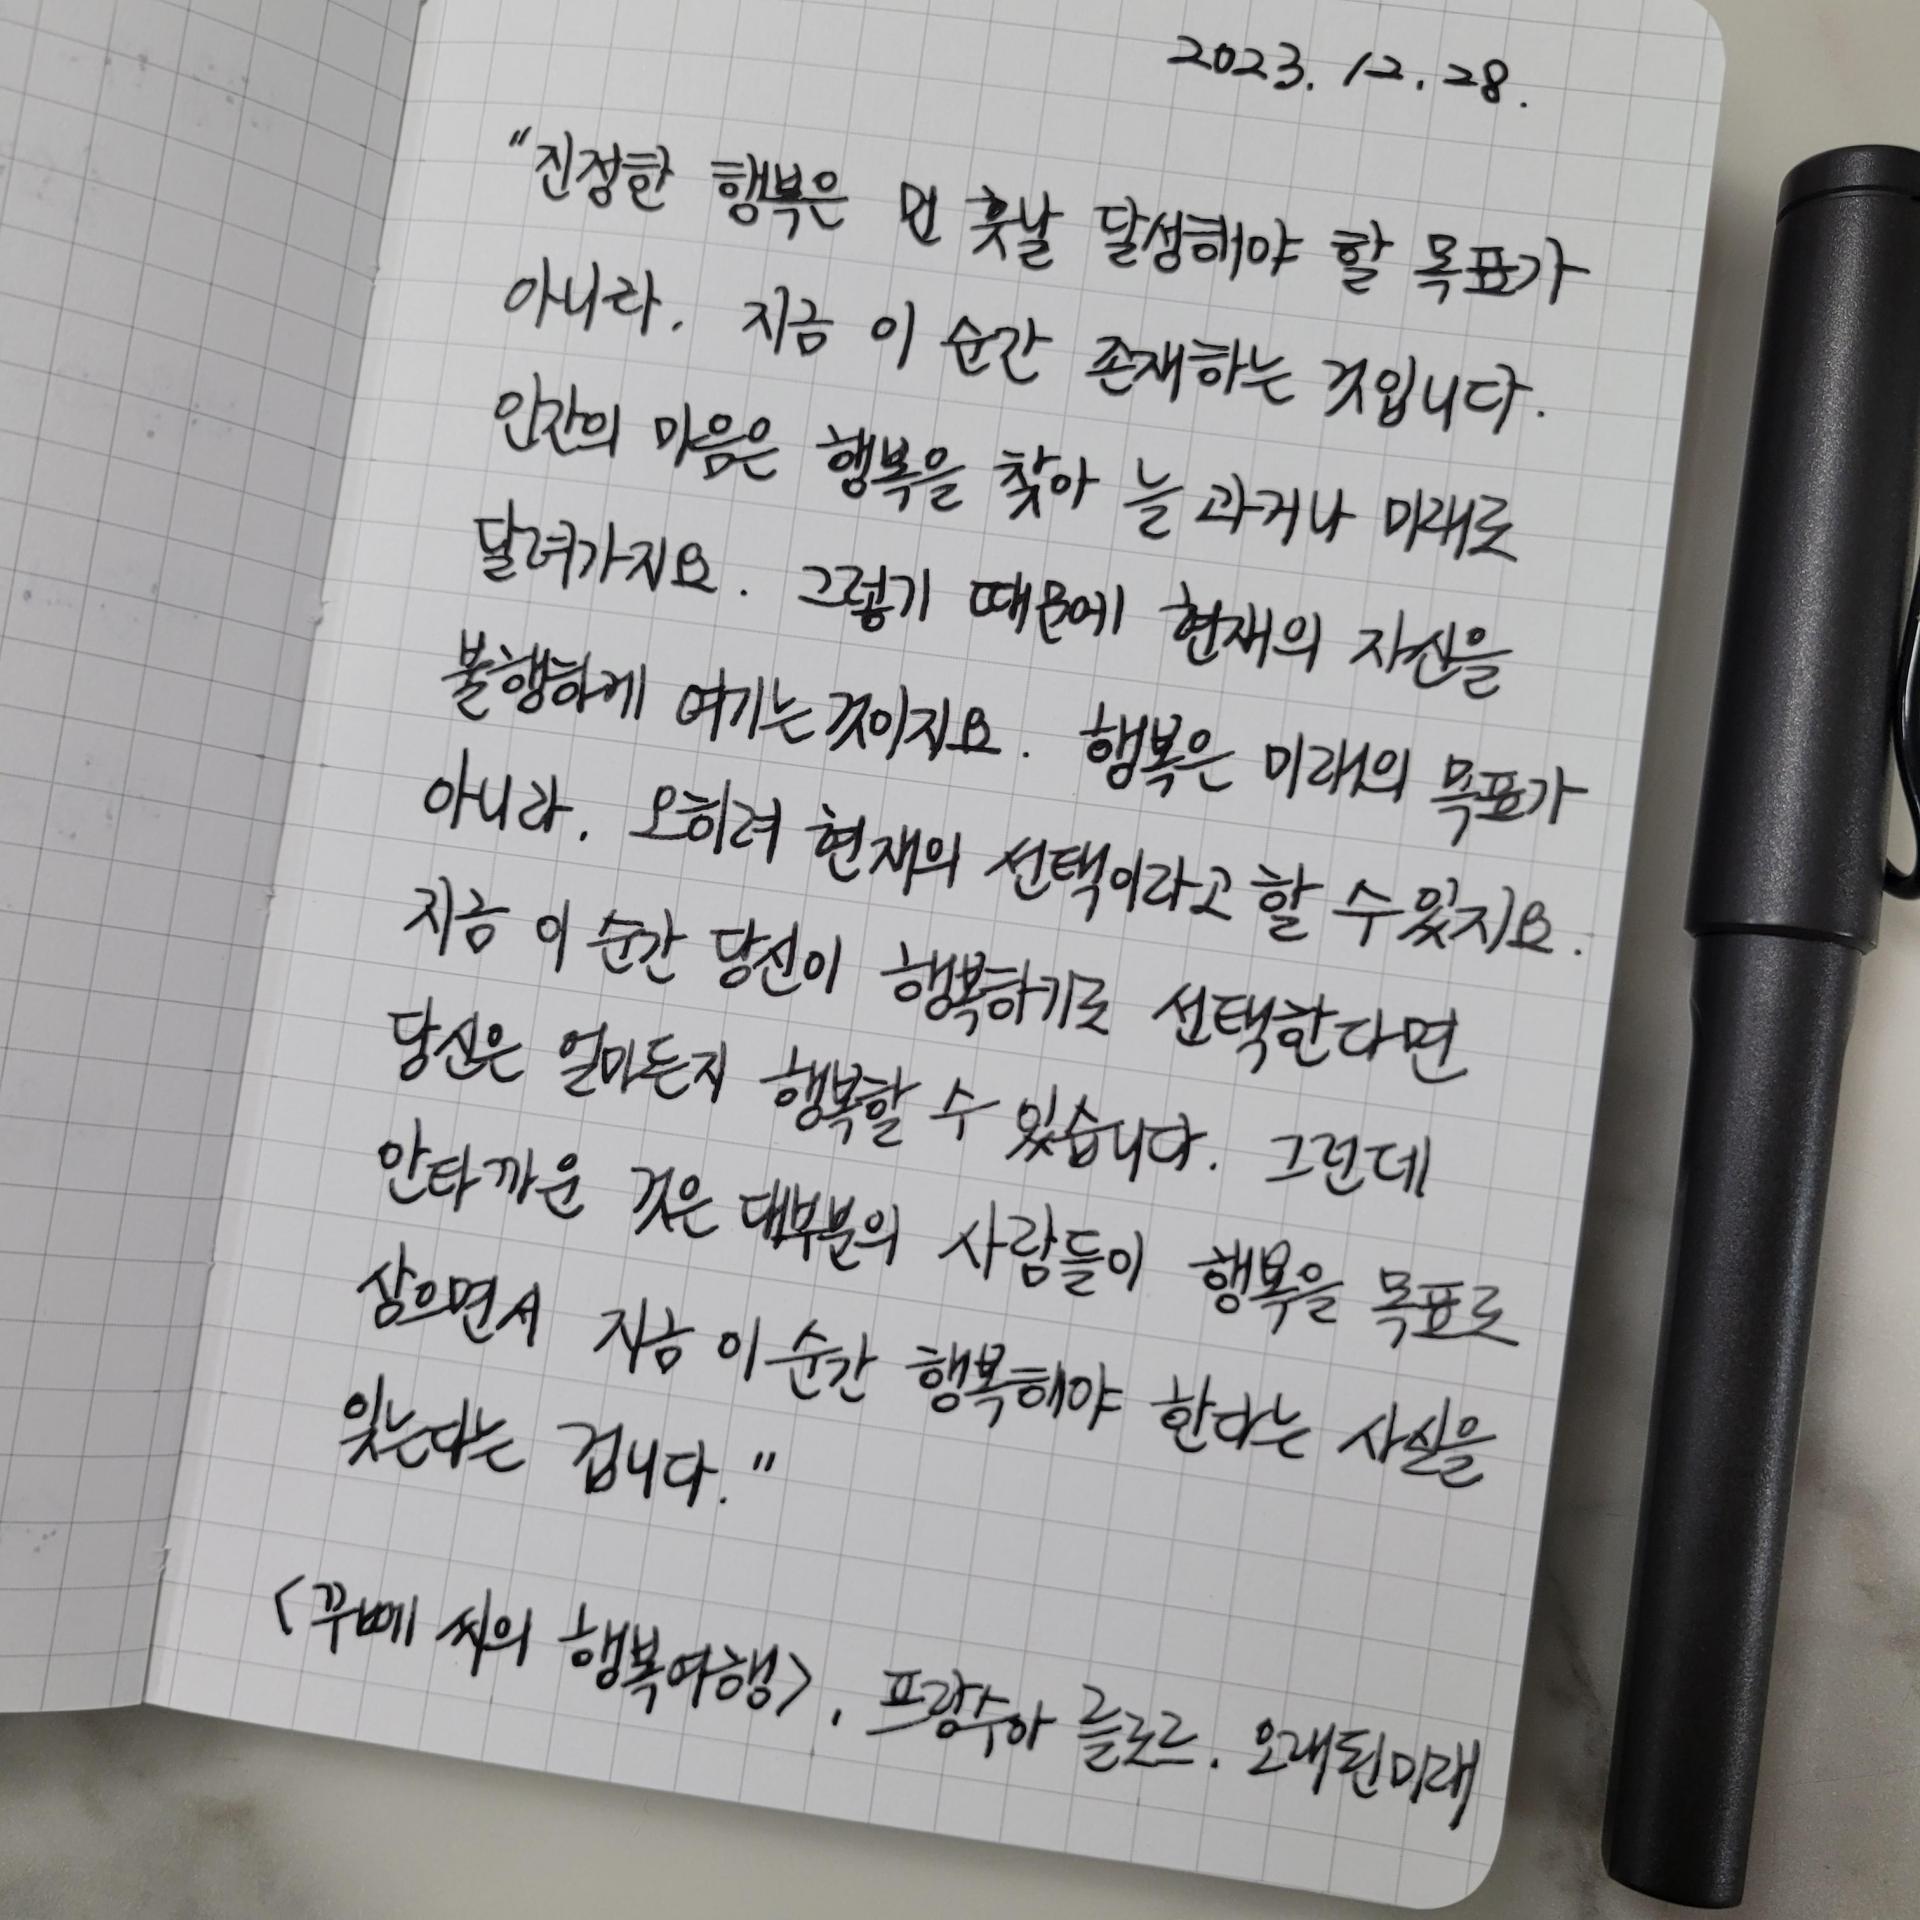 2023. 12. 28.
"진정한 행복은 먼 훗날 달성해야 할 목표가
아니라, 지금 이 순간 존재하는 것입니다.
인간의 마음은 행복을 찾아 늘 과거나 미래로
달려가지요. 그렇기 때문에 현재의 자신을
불행하게 여기는 것이지요. 행복은 미래의 목표가
아니라, 오히려 현재의 선택이라고 할 수 있지요.
지금 이 순간 당신이 행복하기로 선택한다면
당신은 얼마든지 행복할 수 있습니다. 그런데
안타까운 것은 대부분의 사람들이 행복을 목표로
삼으면서 지금 이 순간 행복해야 한다는 사실을
잊는다는 겁니다."
<꾸뻬 씨의 행복여행>, 프랑수아 를로르, 오래된미래